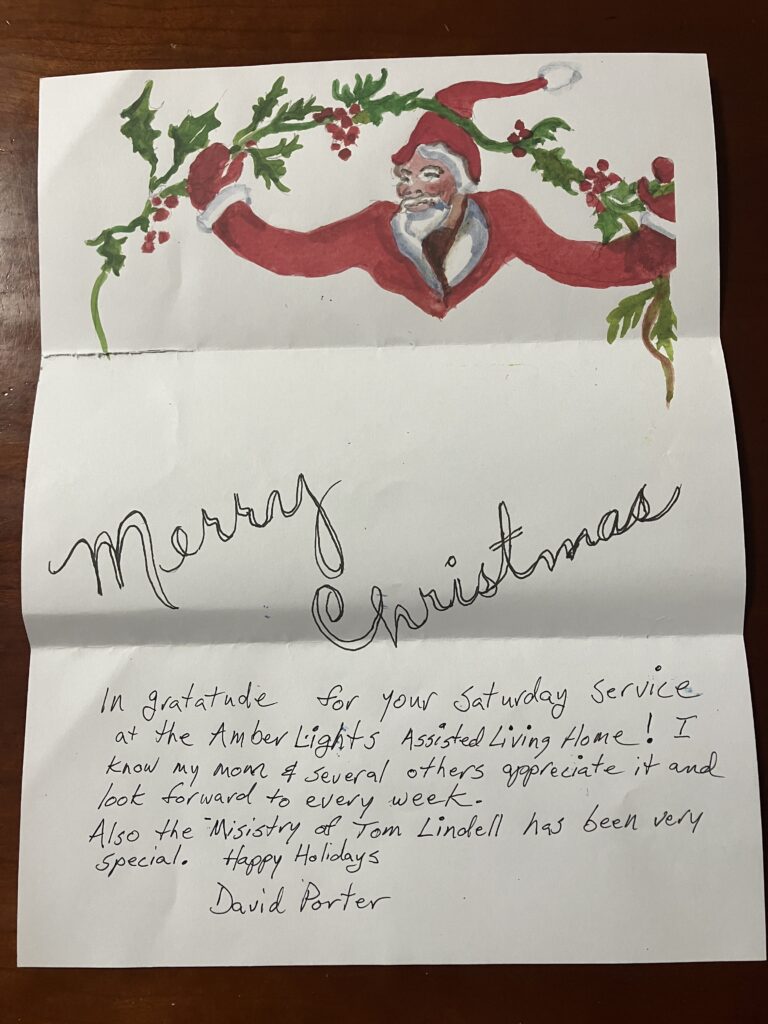 Merry
Christmas
In gratatude for your Saturday service
at the Amber Lights Assisted Living Home! I
know my mom & several others appreciate it and
look forward to every week.
Also the Misistry of Tom Lindell has been very
special. Happy Holidays
David Porter